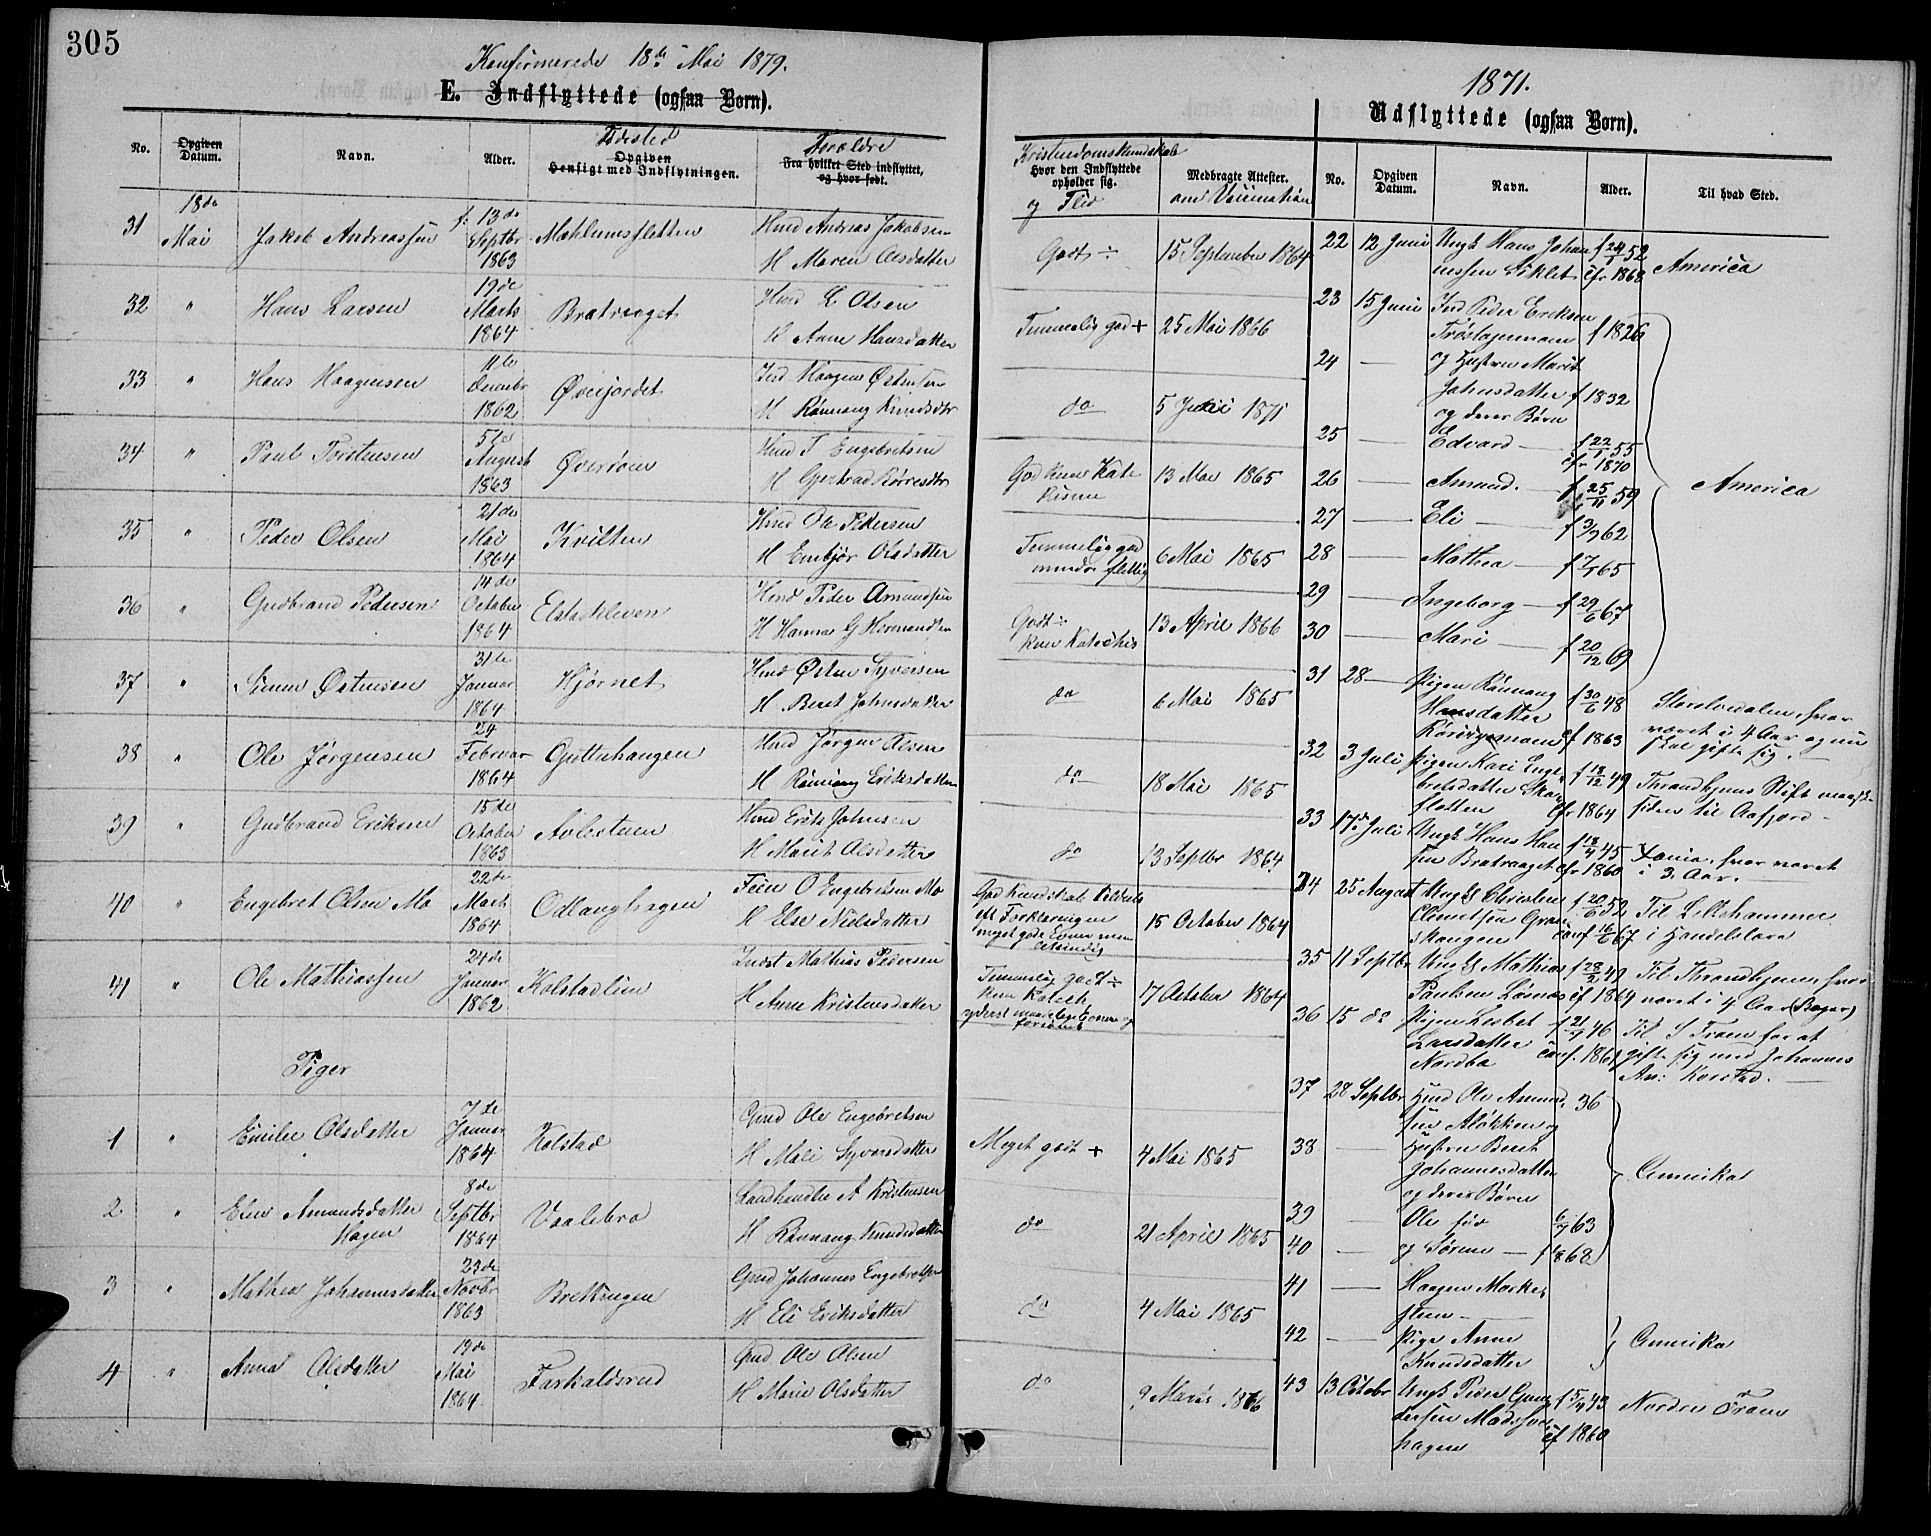 305
Konfirmerede 18de Mai 1879.
E. Indflyttede (ogsaa Børn).
No.
Opgiven Datum.
Navn.
Alder.
Fødested
Opgiven Hensigt med Indflytningen.
Forældre
Fra hvilket Sted indflyttet, og hvor født.
Kristendomskundskab
Hvor den Indflyttede opholder sig.
og Flid
Medbragte Attester.
om Vaccination
31 18de Mai Jakob Andreassen f. 13de Septbr 1863 Mæhlumsfletten Hmd Andreas Jakobsen H Maren Olsdatter Godt ÷ 15 September 1864
32 " Hans Larsen 19de Marts 1864 Bratvaaget Hmd L Olsen H Anne Hansdatter Temmelig god + 25 Mai 1866
33 " Hans Haagensen 11te Decmbr 1862 Øverjordet Haagen Østensen H Rønnaug Knudsdtr do 5 1871
34 " Paul Torstensen 5te August 1863 Øverøien Hmd T Engebretsen H Gjertrud Børresdtr God kun Kate kisme 13 Mai 1865
35 " Peder Olsen 21de Mai 1864 Kvilten Hmd Ole Pedersen H Embjør Olsdatter Temmelig god mindre flittig 6 Mai 1865
36 " Gudbrand Pedersen 14de October 1864 Elstadkleven Hmd Peder Amundsen H Hanna G Godt ÷ kun Katechis 13 April 1866
37 " Simen Østensen 31te Januar 1864 Hjørnet Hmd Østen Syversen H Beret Johnsdatter do 6 Mai 1865
38 " Ole Jørgensen 24 Februar 1864 Hmd Jørgen Olsen H Rønnaug Eriksdatter do 18 Mai 1865
39 " Gudbrand Eriksen 15de October 1863 Avlesteien Hmd Erik Johnsen H Marit Olsdatter do 13 Septbr 1864
40 " Engebret Olsen Mo 22de Mart 1864 Odlaughagen O Engebretsen Mo H Else Nielsdatter God Kundskab Forklaringen meget gode Evner men letsindig 15 October 1864
41 " Ole Mathiassen 24de Januar 1862 Kolstadlien Indst Mathias Pedersen H Anne Kristensdatter Temmelig godt ÷ kun Katech yderst maadelige Evner og 17 October 1864
Piger
1 " Emilie Olsdatter 7de Januar 1864 Kolstad Gmd Ole Engebretsen H Mali Syversdatter Meget godt + 4 Mai 1865
2 " Elen Amundsdatter Hagen 8de Septbr 1864 Vaalebro Landhandler A Kristensen H Rønnaug Knudsdatter do 21 April 1865
3 " Mathea Johannesdatter 23de Novbr 1863 Brekkengen Gmd Johannes Engebretsen H Eli Eriksdatter do 4 Mai 1865
4 " Anna Olsdatter 19de Mai 1864 Gmd Ole Olsen H Marie Olsdatter do 9 Marts 1866
1871.
Udflyttede (ogsaa Børn).
No.
Opgiven Datum.
Navn.
Alder.
Til hvad Sted.
22 12 Juni Ungk Hans Johan nessen Siklet f 24/1 52 cfr 1868 America
23 15 Juni Ind Peder Eriksen Frøslagermoen f 1826
24 — og Hustru Marit Johnsdatter f 1832
og deres Børn
25 — Edvard — f 22/1 55 cfr 1870
26 — Amund. — f 25/11 59 America
27 — Eli — f 3/9 62
28 — Mathea — f 7/7 65
29 — Ingeborg — f 29/6 67
30 — Mari — f 20/12 69
31 28 — Pigen Rønnaug Hansdatter f 30/6 48 cf 1863 Storelvedalen, hvor været i 4 Aar og nu skal gifte sig.
32 3 Juli Pigen Kari Enge bretsdatter Ska flotten f 18/12 49 cfr 1864 Throndhjems Stift siden til Aafjord
33 17de Juli Ungk Hans Han sen Bratvaaget f 13/4 45 cfr 1860 hvor været i 3 Aar.
34 25 August Ungk Christen Clemetsen Gran skougen f 20/6 52 conf 16/6 67 Til Lillehammer i Handelslære
35 11 Septbr Ungk Mathias Paulsen Løsnæs f 28/2 49 cf 1864 Til Throndhjem, hvor været i 4 Aar (Bager)
36 15 do Pigen Lisbet Larsdatter Nordbø f 21/7 46 conf. 1861 Til S Fron for at gifte sig med Johannes An: Korstad.
37 28 Septbr Hmd Ole Amund sen Aløkken og 36
38 — Hustru Beret Johannesdatter
og deres Børn Amerika
39 — Ole født 6/7 63
40 — og Sørine — f 68
41 — Haagen Marke steen —
42 — Pige Anne Knudsdatter Amerika
43 13 Octobr Ungk Peder Gun dersen Mads hagen f 5/9 43 cf 1860 Nordre Fron